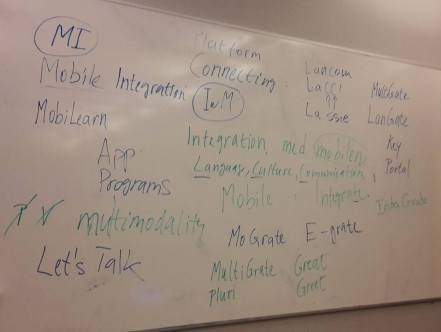 MI
Mobile Integration
MobiLearn
App
Programs
multimodality
Let's Talk
Platform
Connecting
IwM
Integration med mobilen
Language, Culture, Comunication,
Mobile Integrate
MoGrate E-grate
MultiGrate Great
Pluri Greet
Lancom
LaCCI
Lassie
MultiGate
LanGate
Key
Portal
IntraGrade